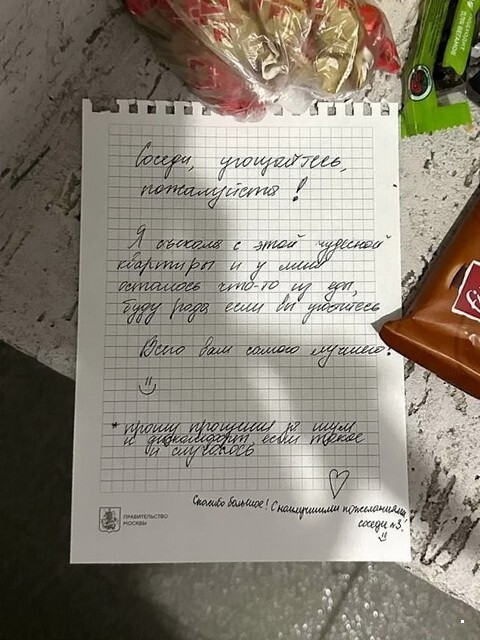 Соседи, угощайтесь,
пожалуйста!
Я съехала с этой чудесной
квартиры и у меня
осталось что-то из еды,
буду рада если вы угоститесь
Всего вам самого лучшего!
* прошу прощения за шум
и дискомфорт, если такое
и случалось
Спасибо большое! С наилучшими пожеланиями
соседи №3.
ПРАВИТЕЛЬСТВО
МОСКВЫ